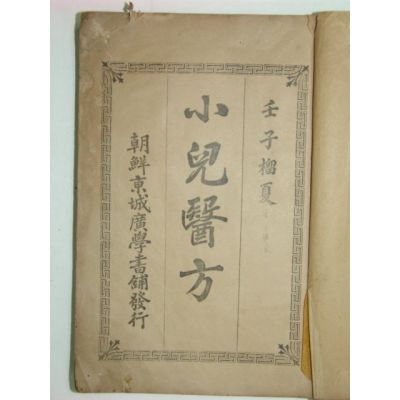 壬子榴夏
小兒醫方
朝鮮京城廣學書鋪發行